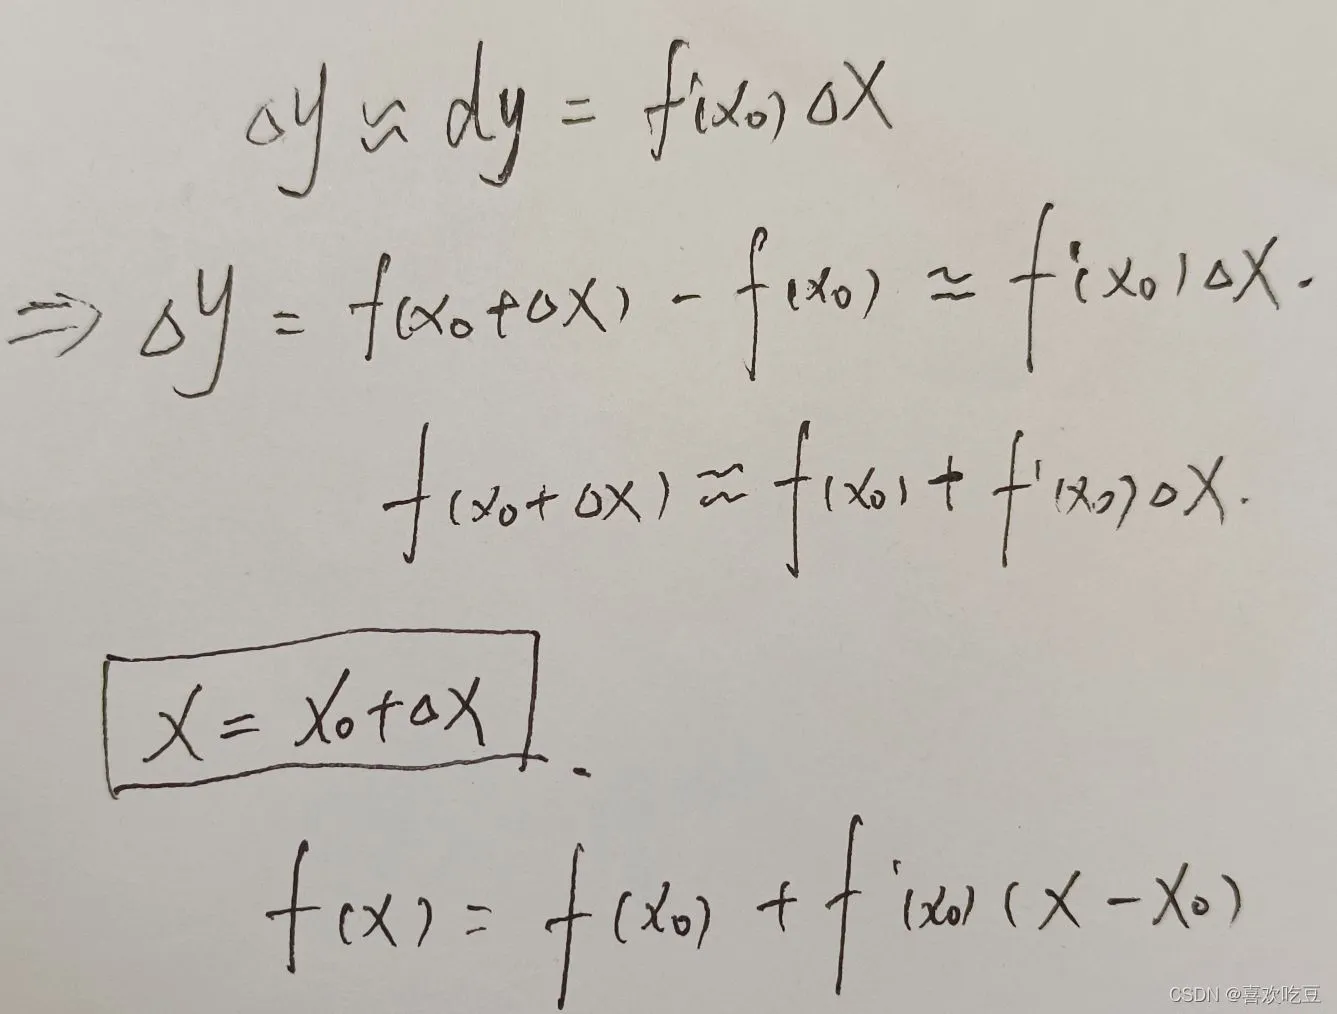 Δy ≈ dy = f'(x₀)Δx
⇒ Δy = f(x₀+Δx) - f(x₀) ≈ f'(x₀)Δx.
f(x₀+Δx) ≈ f(x₀) + f'(x₀)Δx.
x = x₀+Δx.
f(x) = f(x₀) + f'(x₀)(x-x₀)
CSDN @喜欢吃豆